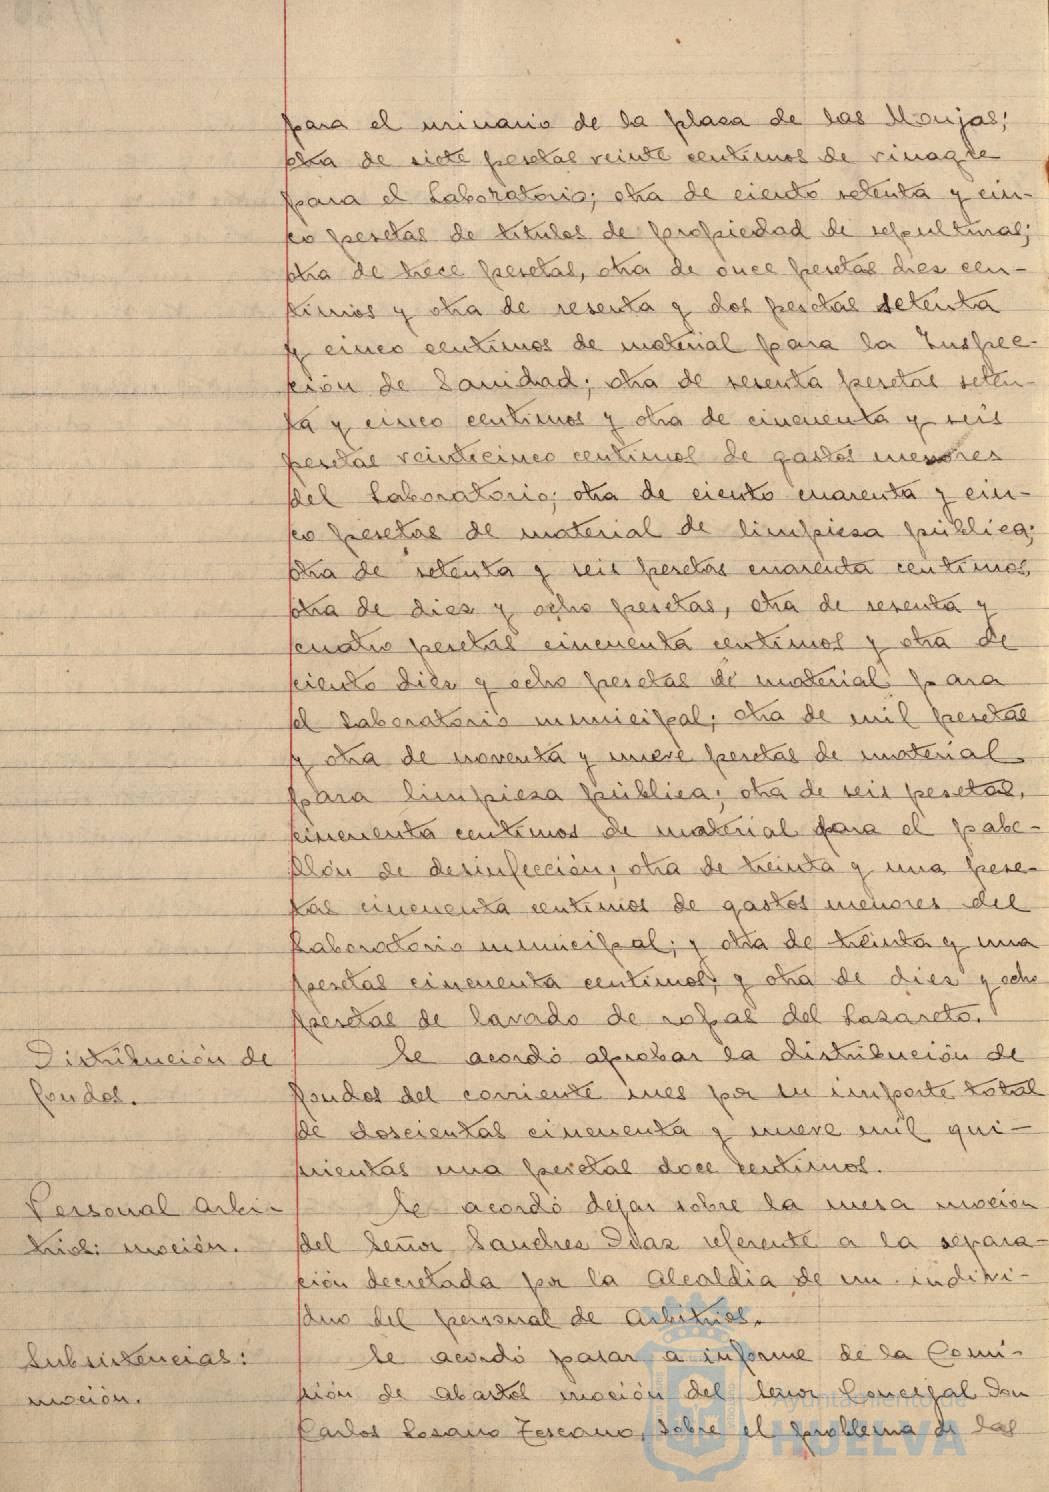 para el urinario de la plaza de las Monjas;
otra de siete pesetas veinte centimos de vinagre
para el Laboratorio; otra de ciento setenta y cin-
co pesetas de titulos de propiedad de sepulturas;
otra de trece pesetas, otra de once pesetas diez cen-
timos y otra de sesenta y dos pesetas setenta
y cinco centimos de material para la Inspec-
ción de Sanidad; otra de sesenta pesetas seten-
ta y cinco centimos y otra de cincuenta y seis
pesetas veinticinco centimos de gastos menores
del Laboratorio; otra de ciento cuarenta y cin-
co pesetas de material de limpieza pública;
otra de setenta y seis pesetas cuarenta centimos,
otra de diez y ocho pesetas, otra de sesenta y
cuatro pesetas cincuenta centimos y otra de
ciento diez y ocho pesetas de material para
el Laboratorio municipal; otra de mil pesetas
y otra de noventa y nueve pesetas de material
para limpieza pública; otra de seis pesetas,
cincuenta centimos de material para el pabe-
llón de desinfección; otra de treinta y una pese-
tas cincuenta centimos de gastos menores del
Laboratorio municipal; y otra de treinta y una
pesetas cincuenta centimos; y otra de diez y ocho
pesetas de lavado de ropas del Lazareto.
Distribución de
fondos.
Se acordó aprobar la distribución de
fondos del corriente mes por su importe total
de doscientas cincuenta y nueve mil qui-
nientas una pesetas doce centimos.
Personal Arbi-
trios: moción.
Se acordó dejar sobre la mesa moción
del Señor Sanchez Diaz referente a la separa-
ción decretada por la Alcaldia de un indivi-
duo del personal de Arbitrios.
Subsistencias:
moción.
Se acordó pasar a informe de la Comi-
sión de Abastos moción del Señor Concejal Don
Carlos Lozano Toscano, sobre el problema de las
Ayuntamiento de
HUELVA